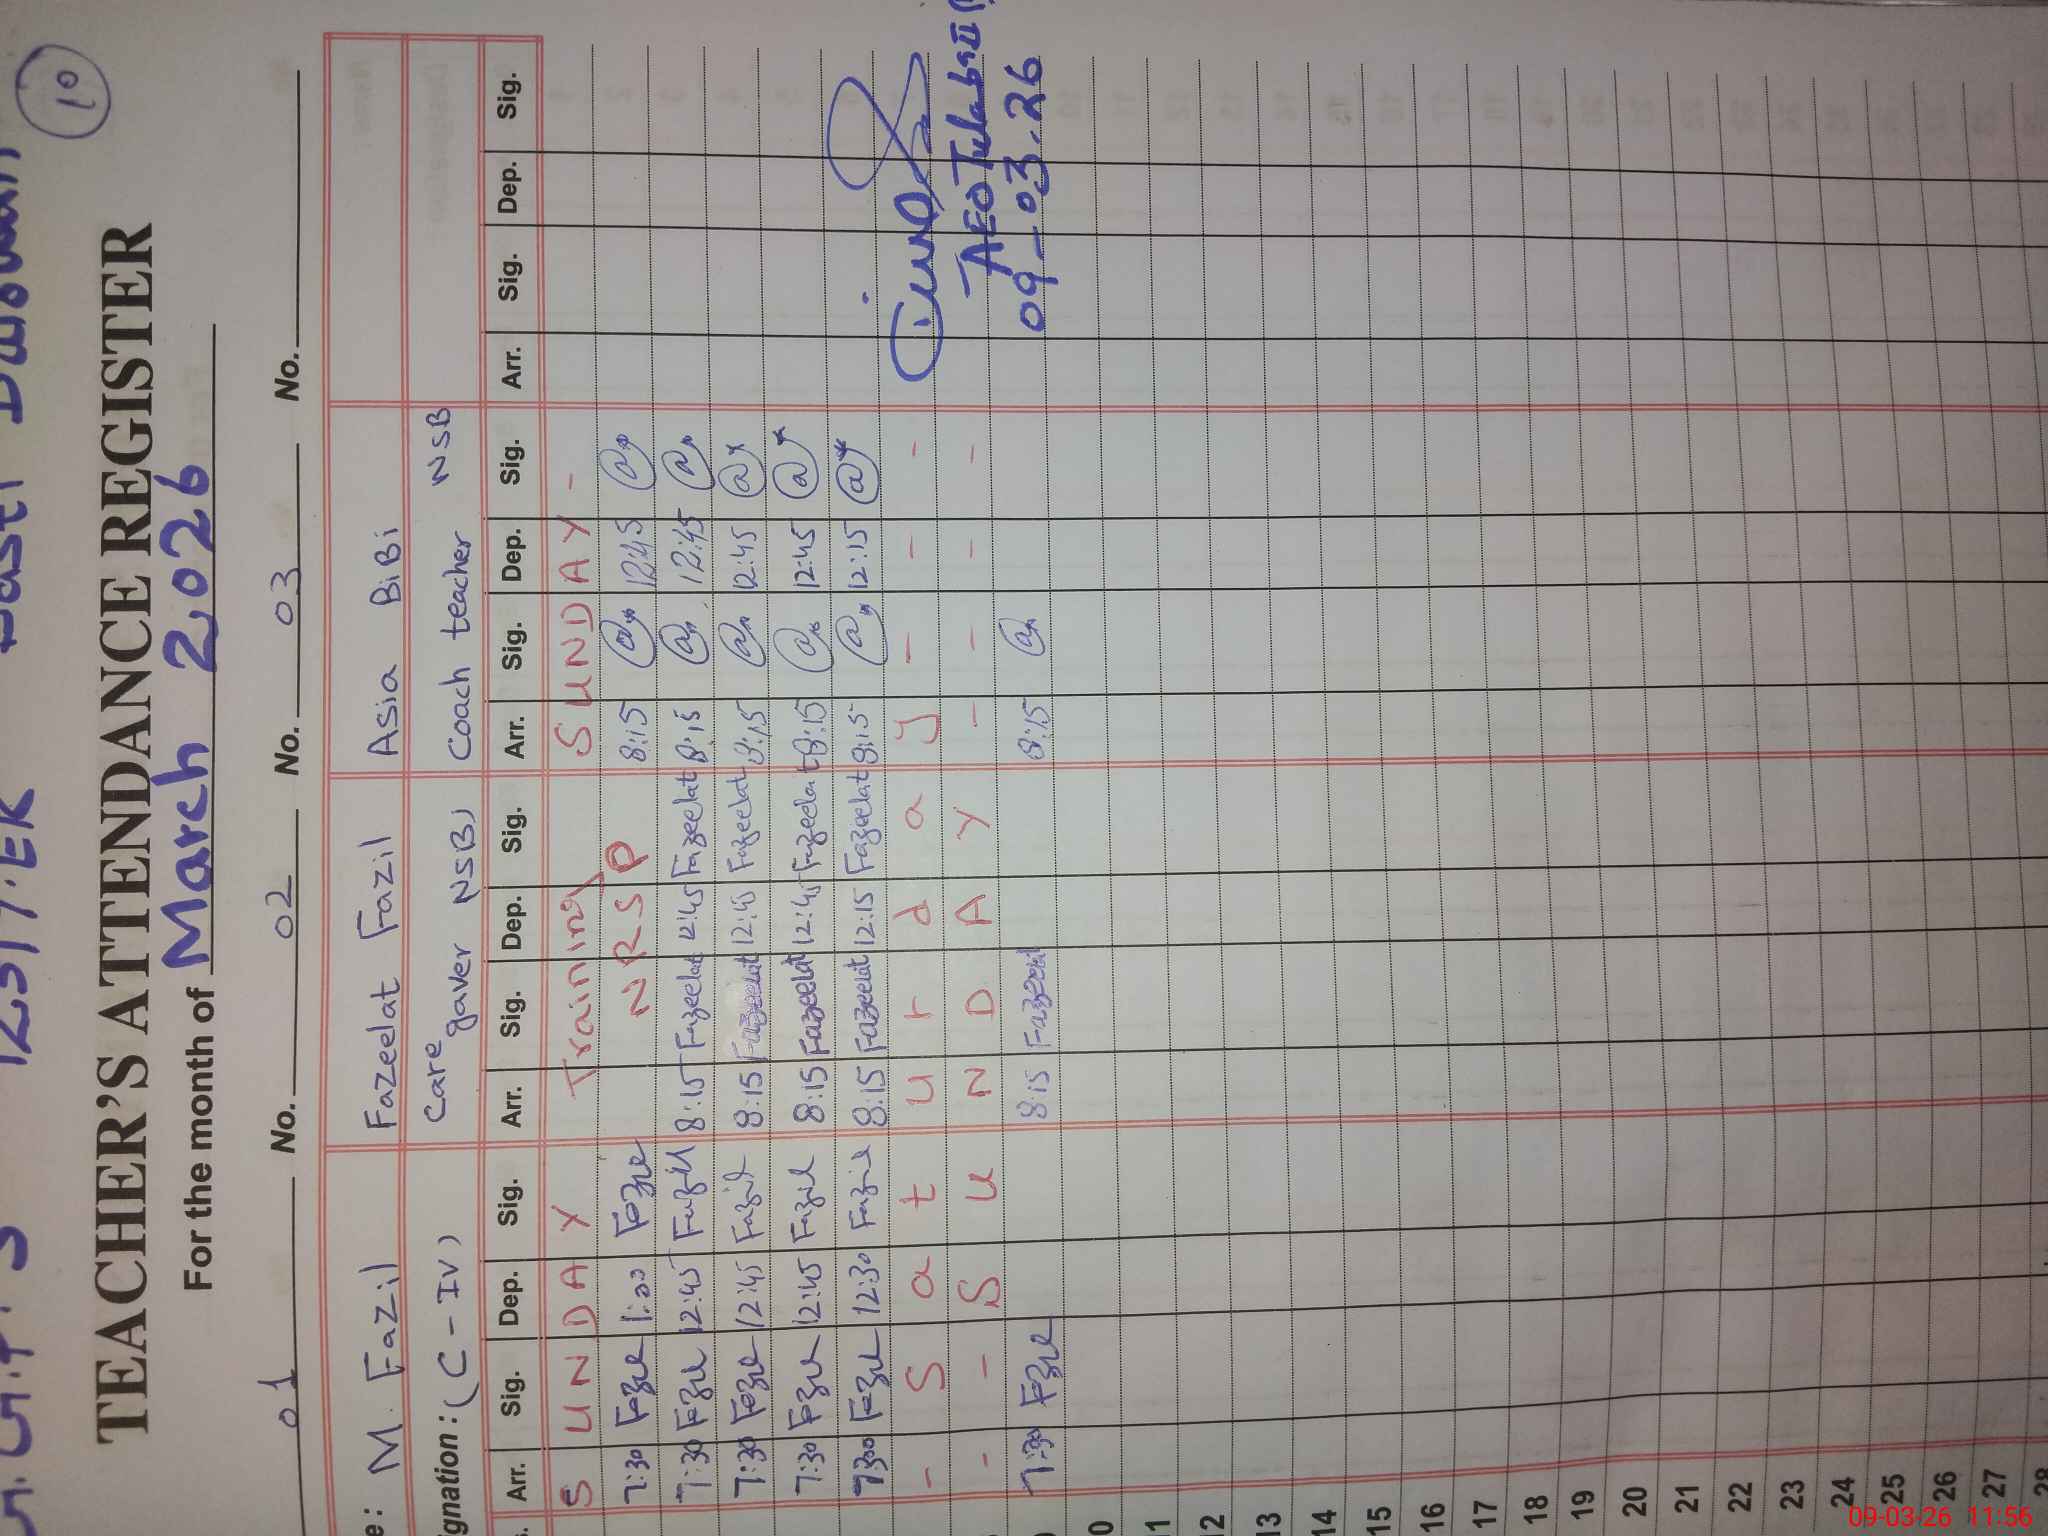 123/7.ER
10
TEACHER'S ATTENDANCE REGISTER
For the month of March 2,026
01 No. 02 No. 03 No.
e: M. Fazil Fazeelat Fazil Asia BiBi
gnation: (C-IV) Care gaver NSB) Coach teacher NSB
Arr. Sig. Dep. Sig. Arr. Sig. Dep. Sig. Arr. Sig. Dep. Sig. Arr. Sig. Dep. Sig.
SUNDAY Training SUNDAY -
7:30 Fazil 1:00 Fazil NRSP 8:15 12:45
7:30 Fazil 12:45 Fazil 8:15 Fazeelat 12:45 Fazeelat 8:15 12:45
7:30 Fazil 12:45 Fazil 8:15 Fazeelat 12:45 Fazeelat 8:15 12:45
7:30 Fazil 12:45 Fazil 8:15 Fazeelat 12:45 Fazeelat 8:15 12:45
7:30 Fazil 12:30 Fazil 8:15 Fazeelat 12:15 Fazeelat 8:15 12:15
- Saturday - - -
- - SUNDAY - - - -
7:30 Fazil 8:15 Fazeelat 8:15
AEO Tulabs II
09-03.26
0
11
12
13
14
15
16
17
18
19
20
21
22
23
24
25
26
27
28
09-03-26 11:56